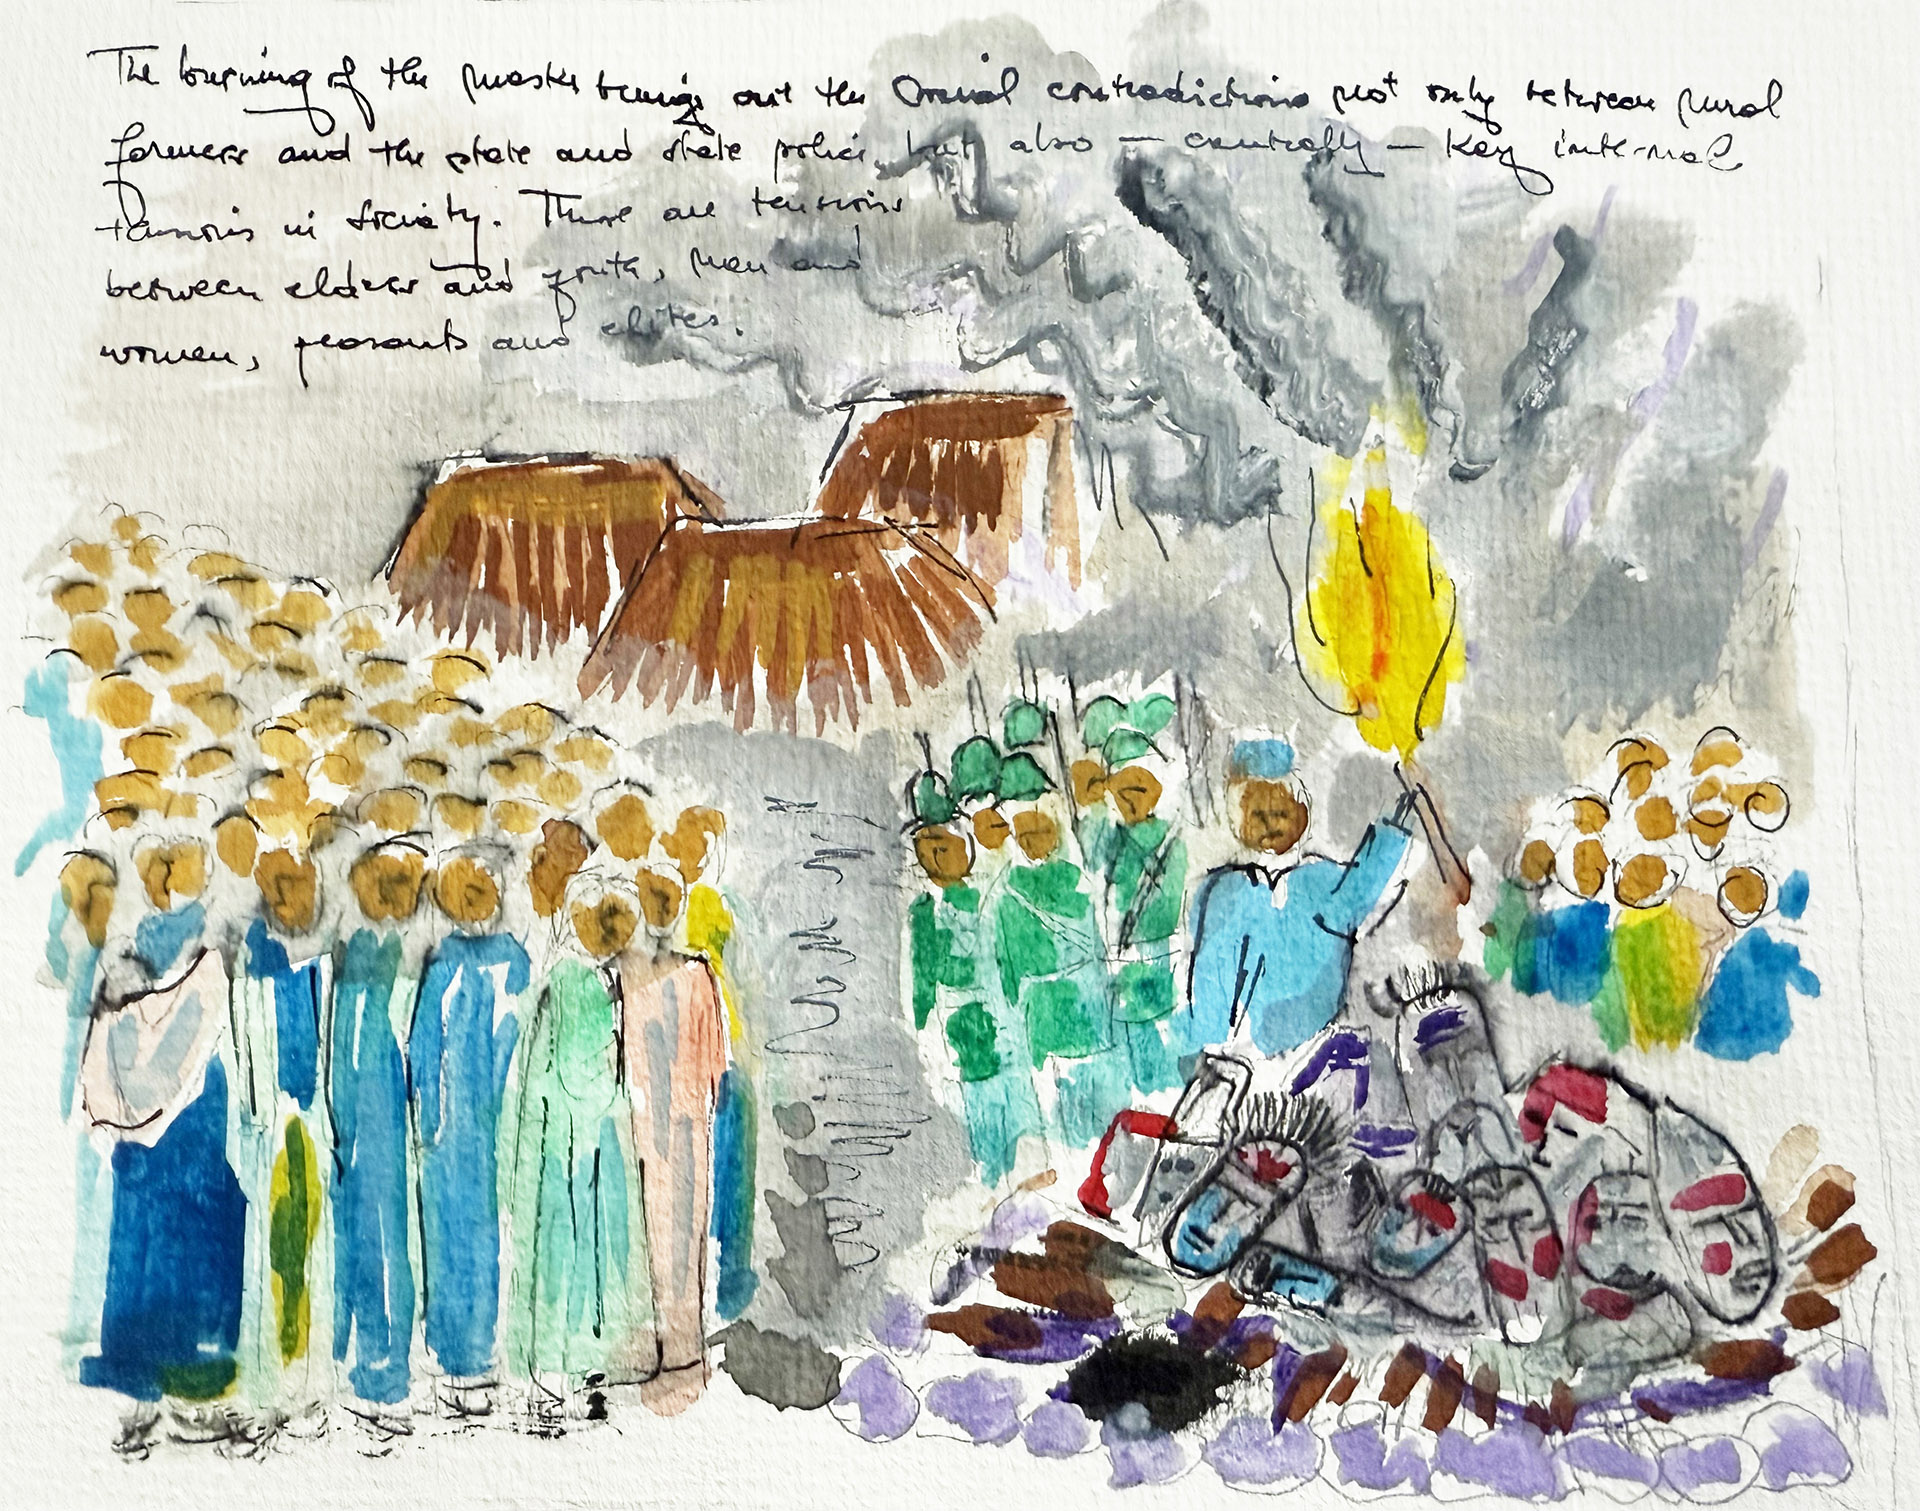 The burning of the masks brings out the crucial contradictions not only between rural
farmers and the state and state policy but also — centrally — key internal
tensions in society. There are tensions
between elders and youth, men and
women, peasants and elites.